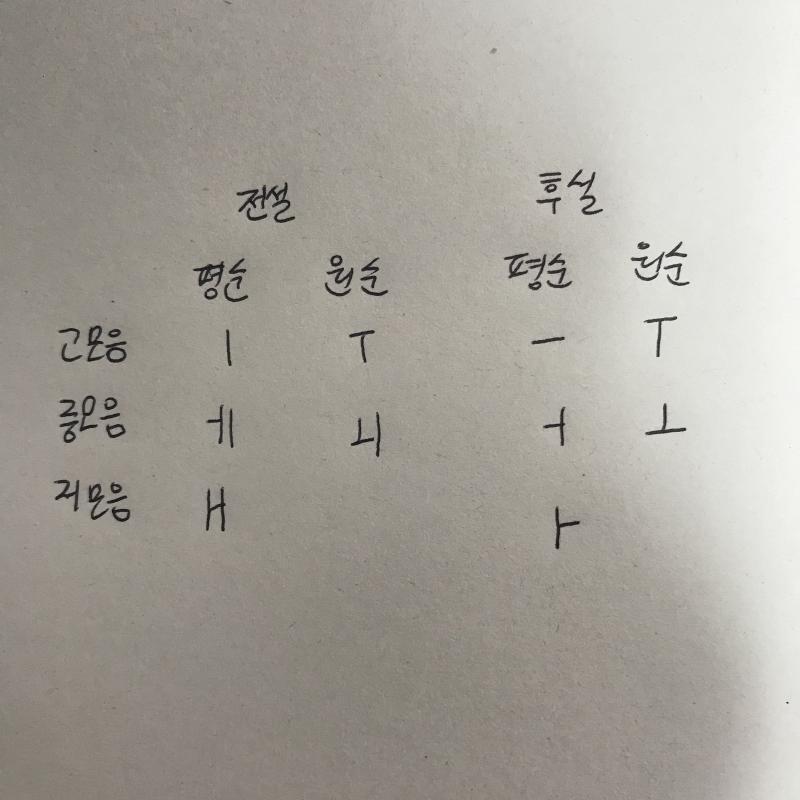 전설 후설
평순 원순 평순 원순
고모음 ㅣ ㅜ ㅡ ㅜ
중모음 ㅔ ㅚ ㅓ ㅗ
저모음 ㅐ ㅏ